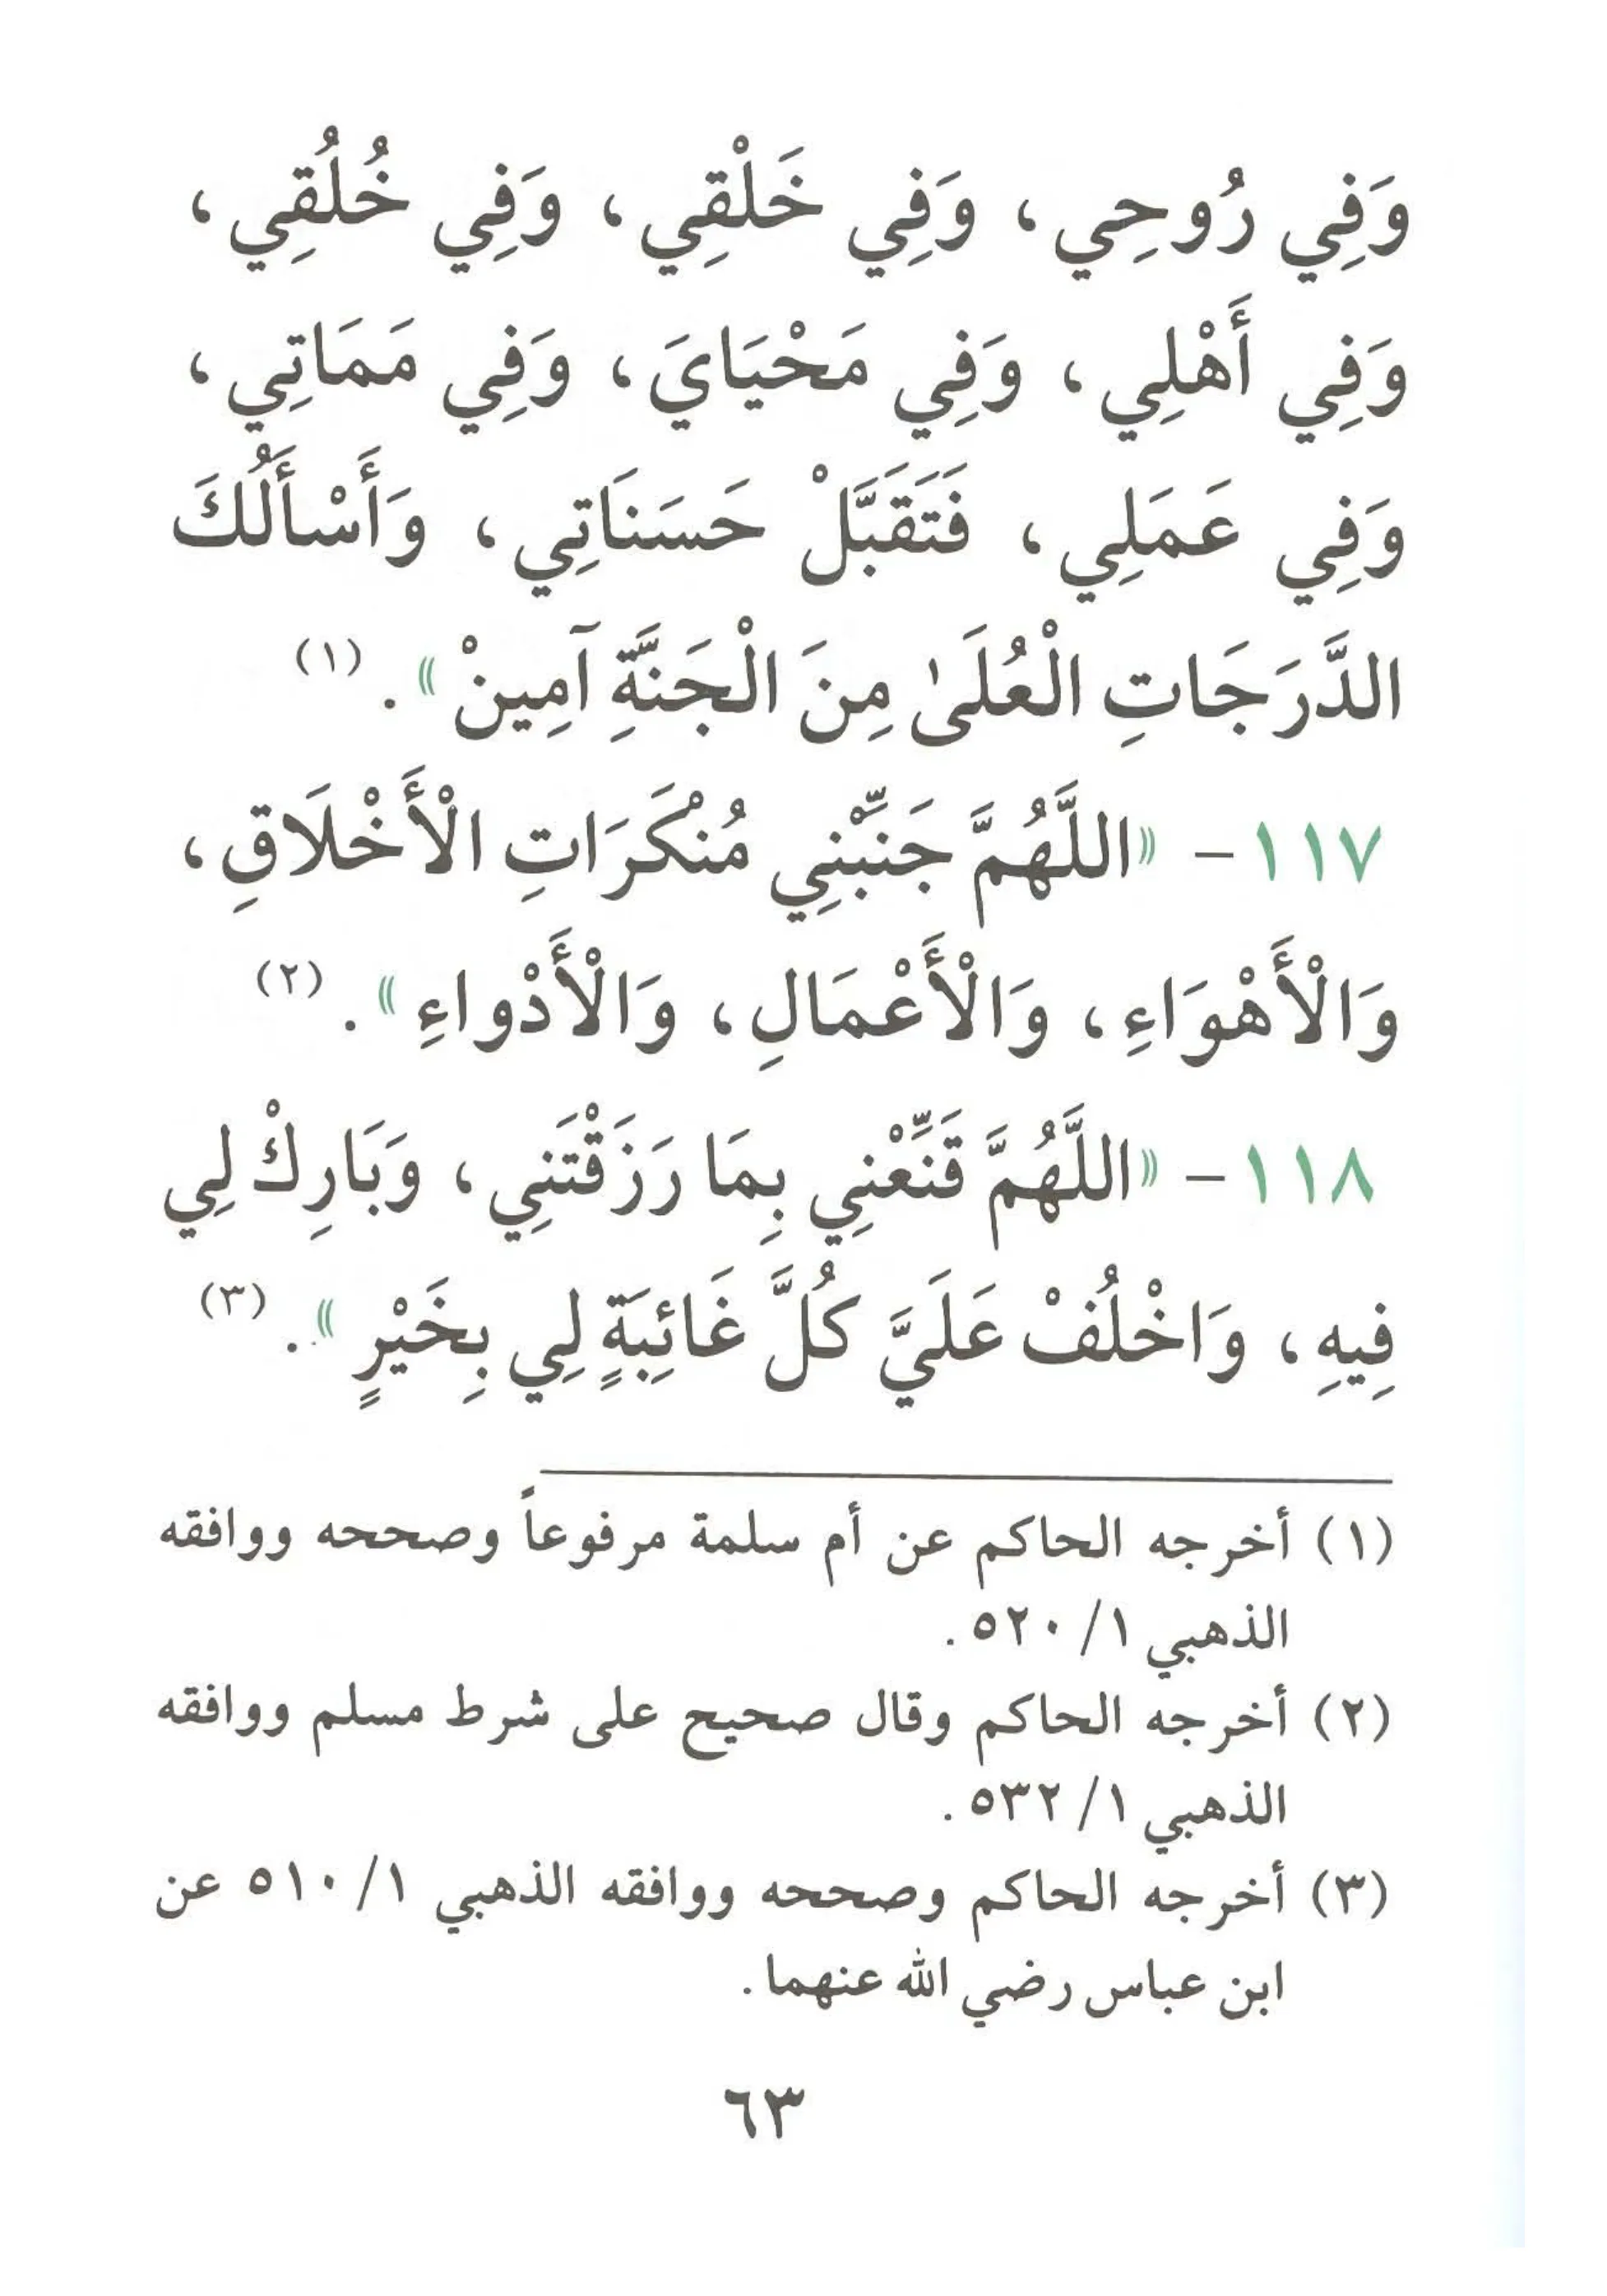 وَفِي رُوحِي، وَفِي خَلْقِي، وَفِي خُلُقِي،
وَفِي أَهْلِي، وَفِي مَحْيَايَ، وَفِي مَمَاتِي،
وَفِي عَمَلِي، فَتَقَبَّلْ حَسَنَاتِي، وَأَسْأَلُكَ
الدَّرَجَاتِ الْعُلَىٰ مِنَ الْجَنَّةِ آمِينْ». (١)
١١٧ – «اللَّهُمَّ جَنِّبْنِي مُنْكَرَاتِ الْأَخْلَاقِ،
وَالْأَهْوَاءِ، وَالْأَعْمَالِ، وَالْأَدْواءِ». (٢)
١١٨ – «اللَّهُمَّ قَنِّعْنِي بِمَا رَزَقْتَنِي، وَبَارِكْ لِي
فِيهِ، وَاخْلُفْ عَلَيَّ كُلَّ غَائِبَةٍ لِي بِخَيْرٍ». (٣)
(١) أخرجه الحاكم عن أم سلمة مرفوعاً وصححه ووافقه
الذهبي ١/ ٥٢٠.
(٢) أخرجه الحاكم وقال صحيح على شرط مسلم ووافقه
الذهبي ١/ ٥٣٢.
(٣) أخرجه الحاكم وصححه ووافقه الذهبي ١/ ٥١٠ عن
ابن عباس رضي الله عنهما.
٦٣